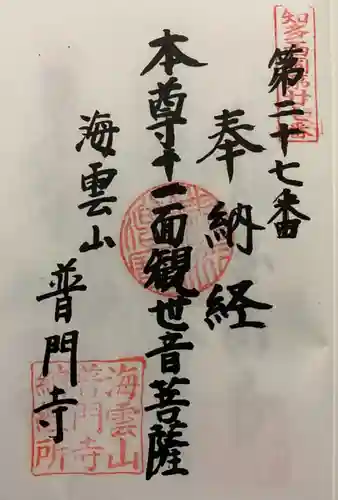 第二十七番
奉納経
本尊十一面観世音菩薩
海雲山
普門寺
海雲山
普門寺
納経所